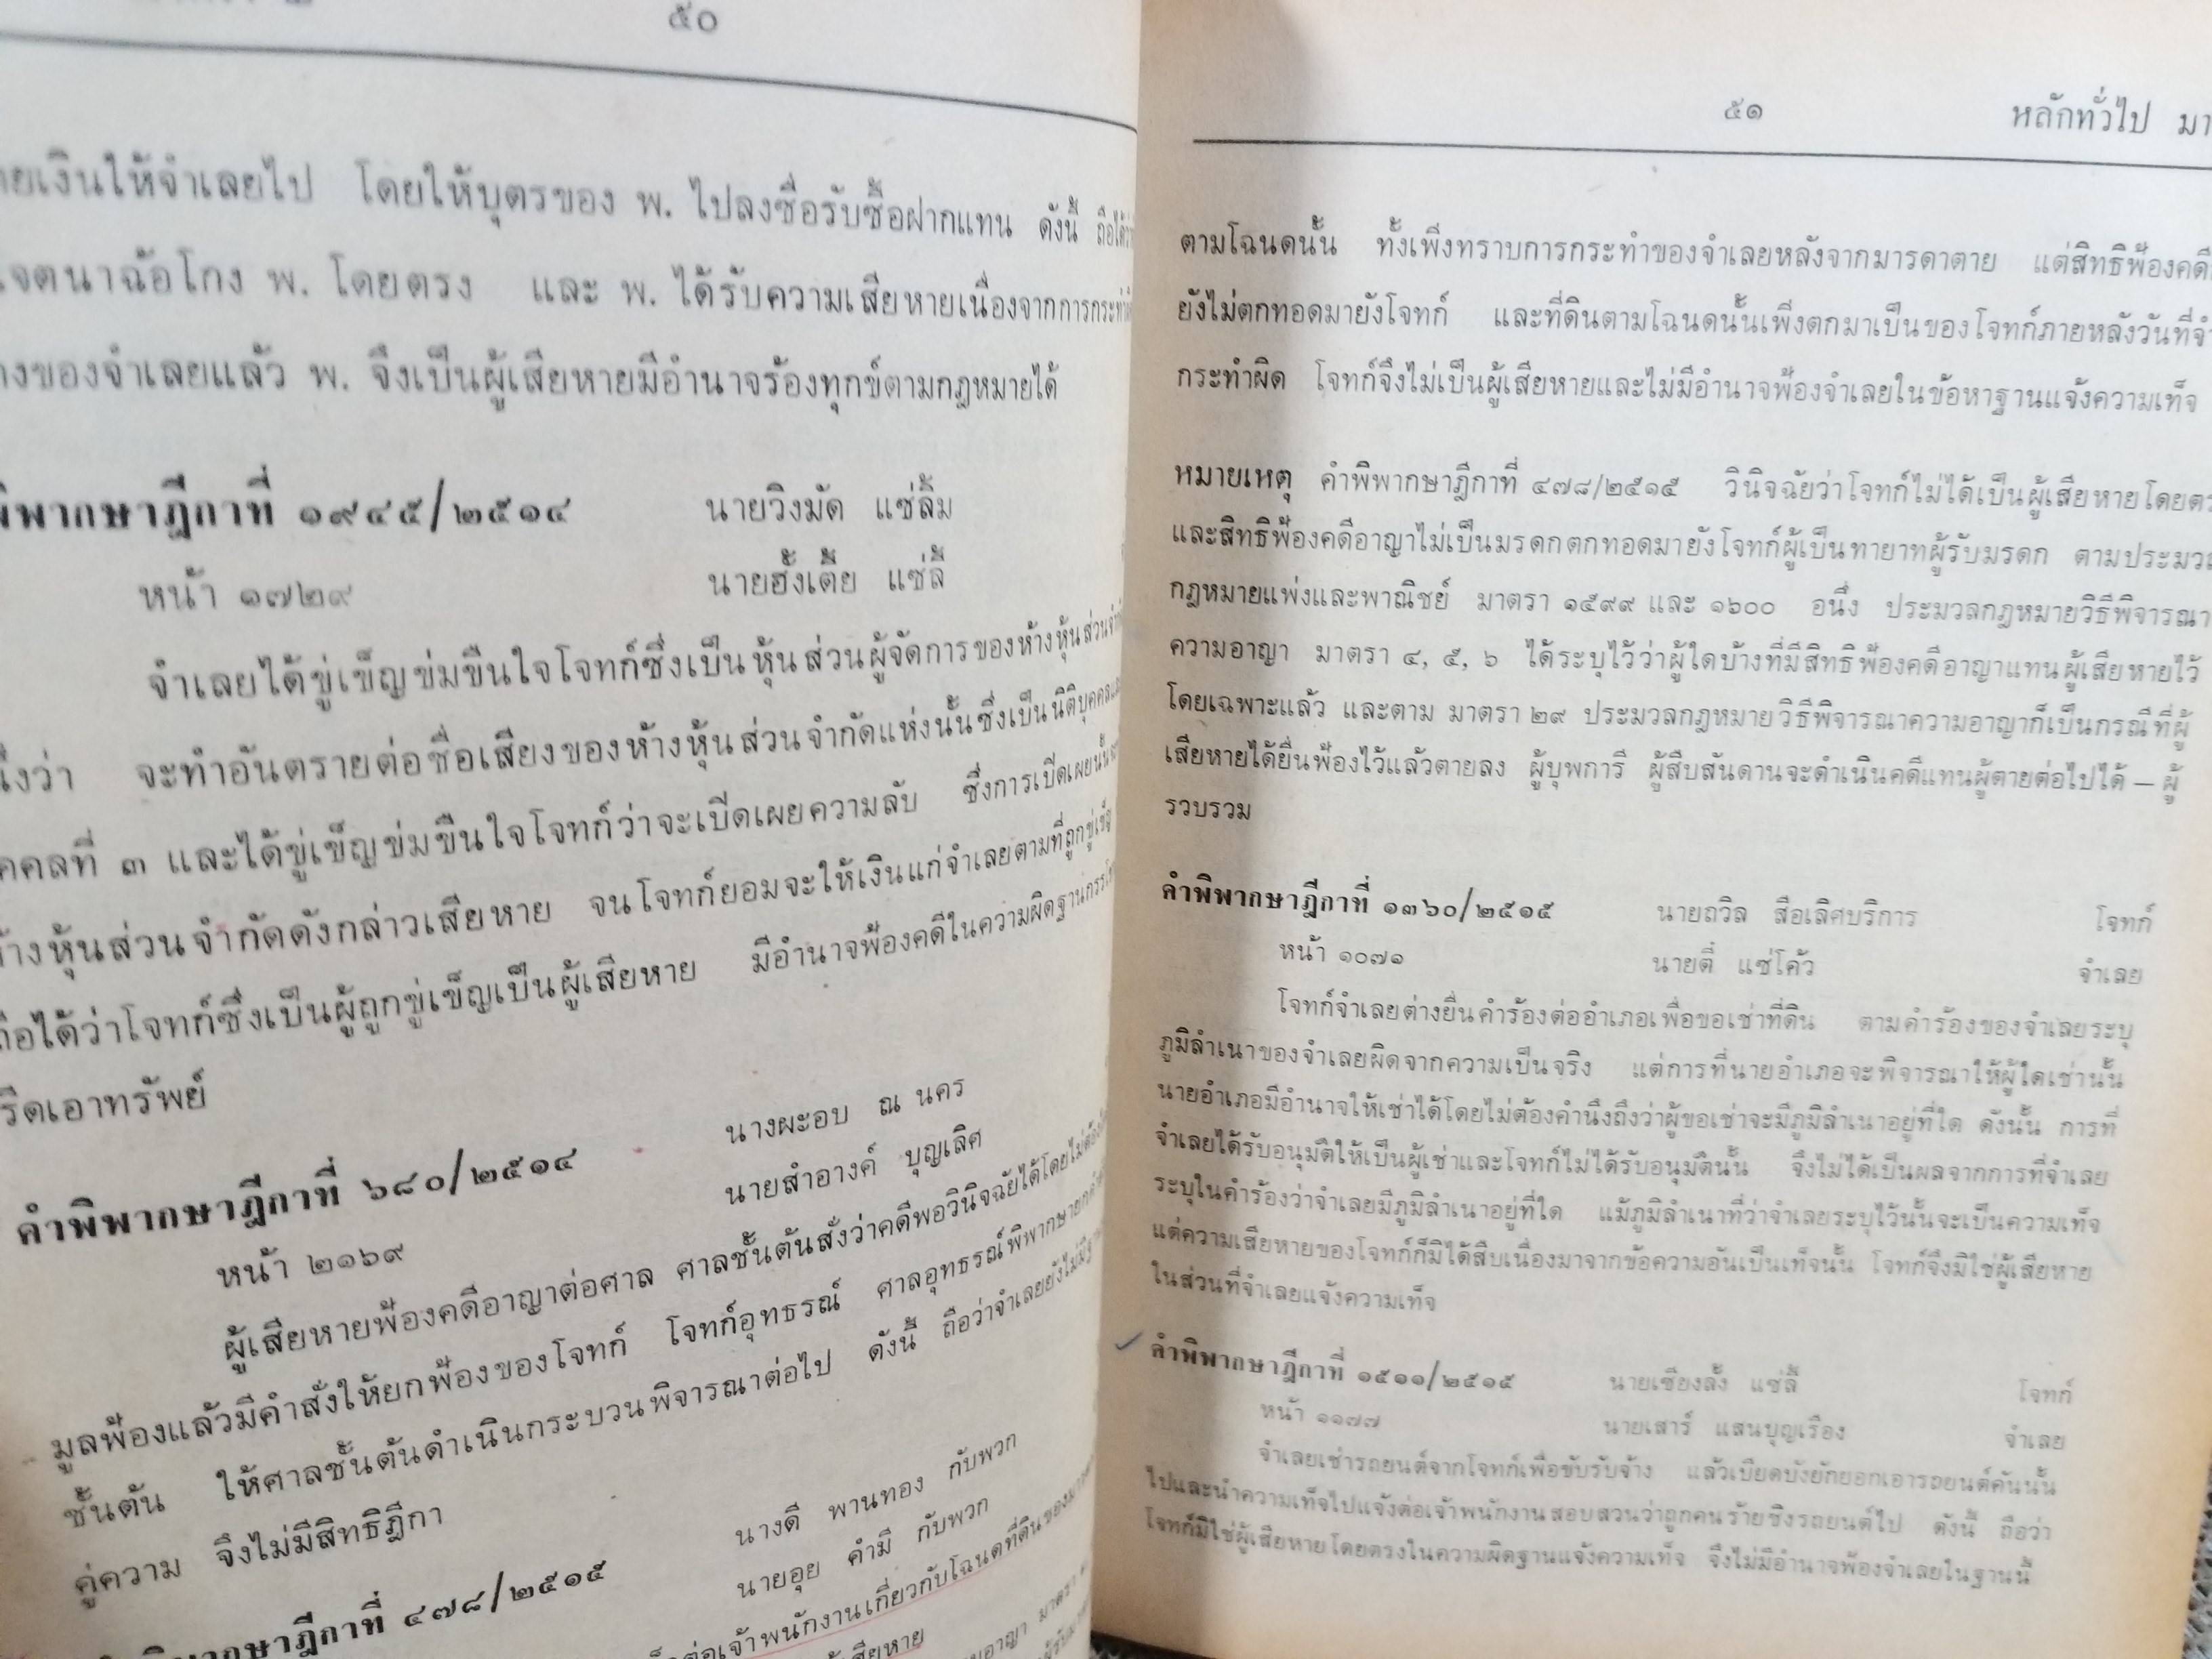 ๕๐
ยเงินให้จำเลยไป โดยให้บุตรของ พ. ไปลงชื่อรับซื้อฝากแทน ดังนี้ ถือได้ว่า
เจตนาฉ้อโกง พ. โดยตรง และ พ. ได้รับความเสียหายเนื่องจากการกระทำ
งของจำเลยแล้ว พ. จึงเป็นผู้เสียหายมีอำนาจร้องทุกข์ตามกฎหมายได้
พิพากษาฎีกาที่ ๑๙๔๕/๒๕๑๔ นายวิงมัด แซ่ลิ้ม
หน้า ๑๗๒๙ นายฮั้งเตีย แซ่ลี้
จำเลยได้ขู่เข็ญข่มขืนใจโจทก์ซึ่งเป็นหุ้นส่วนผู้จัดการของห้างหุ้นส่วน
ว่า จะทำอันตรายต่อชื่อเสียงของห้างหุ้นส่วนจำกัดแห่งนั้นซึ่งเป็นนิติบุคคล
คคลที่ ๓ และได้ขู่เข็ญข่มขืนใจโจทก์ว่าจะเปิดเผยความลับ ซึ่งการเปิดเผยนั้น
้างหุ้นส่วนจำกัดดังกล่าวเสียหาย จนโจทก์ยอมจะให้เงินแก่จำเลยตามที่ถูกขู่เข็ญ
ถือได้ว่าโจทก์ซึ่งเป็นผู้ถูกขู่เข็ญเป็นผู้เสียหาย มีอำนาจฟ้องคดีในความผิดฐานกรรโชก
รีดเอาทรัพย์
คำพิพากษาฎีกาที่ ๖๘๐/๒๕๑๔ นางผะอบ ณ นคร
หน้า ๒๑๖๙ นายสำอางค์ บุญเลิศ
ผู้เสียหายฟ้องคดีอาญาต่อศาล ศาลชั้นต้นสั่งว่าคดีพอวินิจฉัยได้โดยไม่ต้อง
มูลฟ้องแล้วมีคำสั่งให้ยกฟ้องของโจทก์ โจทก์อุทธรณ์ ศาลอุทธรณ์พิพากษายก
ชั้นต้น ให้ศาลชั้นต้นดำเนินกระบวนพิจารณาต่อไป ดังนี้ ถือว่าจำเลยยังไม่มี
คู่ความ จึงไม่มีสิทธิฎีกา
พากษาฎีกาที่ ๔๗๘/๒๕๑๕ นางดี พานทอง กับพวก
นายอุย คำมี กับพวก
ต่อเจ้าพนักงานเกี่ยวกับโฉนดที่ดินของ
เสียหาย อาญา มาตรา
๕๑ หลักทั่วไป มา
ตามโฉนดนั้น ทั้งเพิ่งทราบการกระทำของจำเลยหลังจากมารดาตาย แต่สิทธิฟ้องคดี
ยังไม่ตกทอดมายังโจทก์ และที่ดินตามโฉนดนั้นเพิ่งตกมาเป็นของโจทก์ภายหลังวันที่จำ
กระทำผิด โจทก์จึงไม่เป็นผู้เสียหายและไม่มีอำนาจฟ้องจำเลยในข้อหาฐานแจ้งความเท็จ
หมายเหตุ คำพิพากษาฎีกาที่ ๔๗๘/๒๕๑๕ วินิจฉัยว่าโจทก์ไม่ได้เป็นผู้เสียหายโดยตร
และสิทธิฟ้องคดีอาญาไม่เป็นมรดกตกทอดมายังโจทก์ผู้เป็นทายาทผู้รับมรดก ตามประมวล
กฎหมายแพ่งและพาณิชย์ มาตรา ๑๕๙๙ และ ๑๖๐๐ อนึ่ง ประมวลกฎหมายวิธีพิจารณา
ความอาญา มาตรา ๔, ๕, ๖ ได้ระบุไว้ว่าผู้ใดบ้างที่มีสิทธิฟ้องคดีอาญาแทนผู้เสียหายไว้
โดยเฉพาะแล้ว และตาม มาตรา ๒๙ ประมวลกฎหมายวิธีพิจารณาความอาญาก็เป็นกรณีที่ผู้
เสียหายได้ยื่นฟ้องไว้แล้วตายลง ผู้บุพการี ผู้สืบสันดานจะดำเนินคดีแทนผู้ตายต่อไปได้ – ผู้
รวบรวม
คำพิพากษาฎีกาที่ ๑๓๖๐/๒๕๑๕ นายถวิล สือเลิศบริการ โจทก์
หน้า ๑๐๗๑ นายตี๋ แซ่โค้ว จำเลย
โจทก์จำเลยต่างยื่นคำร้องต่ออำเภอเพื่อขอเช่าที่ดิน ตามคำร้องของจำเลยระบุ
ภูมิลำเนาของจำเลยผิดจากความเป็นจริง แต่การที่นายอำเภอจะพิจารณาให้ผู้ใดเช่านั้น
นายอำเภอมีอำนาจให้เช่าได้โดยไม่ต้องคำนึงถึงว่าผู้ขอเช่าจะมีภูมิลำเนาอยู่ที่ใด ดังนั้น การที่
จำเลยได้รับอนุมัติให้เป็นผู้เช่าและโจทก์ไม่ได้รับอนุมัตินั้น จึงไม่ได้เป็นผลจากการที่จำเลย
ระบุในคำร้องว่าจำเลยมีภูมิลำเนาอยู่ที่ใด แม้ภูมิลำเนาที่ว่าจำเลยระบุไว้นั้นจะเป็นความเท็จ
แต่ความเสียหายของโจทก์ก็มิได้สืบเนื่องมาจากข้อความอันเป็นเท็จนั้น โจทก์จึงมิใช่ผู้เสียหาย
ในส่วนที่จำเลยแจ้งความเท็จ
คำพิพากษาฎีกาที่ ๑๕๑๑/๒๕๑๕ นายเซียงลั้ง แซ่ลี้ โจทก์
หน้า ๑๑๗๗ นายเสาร์ แสนบุญเรือง จำเลย
จำเลยเช่ารถยนต์จากโจทก์เพื่อขับรับจ้าง แล้วเบียดบังยักยอกเอารถยนต์คันนั้น
ไปและนำความเท็จไปแจ้งต่อเจ้าพนักงานสอบสวนว่าถูกคนร้ายชิงรถยนต์ไป ดังนี้ ถือว่า
โจทก์มิใช่ผู้เสียหายโดยตรงในความผิดฐานแจ้งความเท็จ จึงไม่มีอำนาจฟ้องจำเลยในฐานนี้